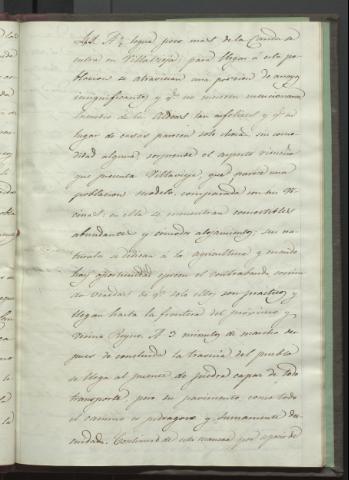 A ½ legua poco mas de la Canda se
entra en Villavieja; para llegar à esta po-
blacion se atraviesan una porcion de arroyos
insignificantes y qe. no merecen mencionarse
de las Aldeas tan infelices y qe. en
lugar de casas parecen solo chozas sin como-
didad alguna, sorprende el aspecto risueño
que presenta Villavieja, qué parece una
poblacion modelo, comparada con sus ve-
cinas: en ella se encuentran comestibles
abundantes y comodos alojamientos; sus na-
turales se dedican à la agricultura y cuando
hay oportunidad ejercen el contrabando
de veredas de qe. solo ellos son practicos y
llegan hasta la frontera del proximo y
vecino Reyno. A 3 minutos de marcha des-
pues de concluida la travesia del pueblo
se llega al puente de piedra capaz de todo
transporte, pero su pavimento, como todo
el camino es pedragoso y sumamente des-
cuidado. Continua de esta manera por espacio de